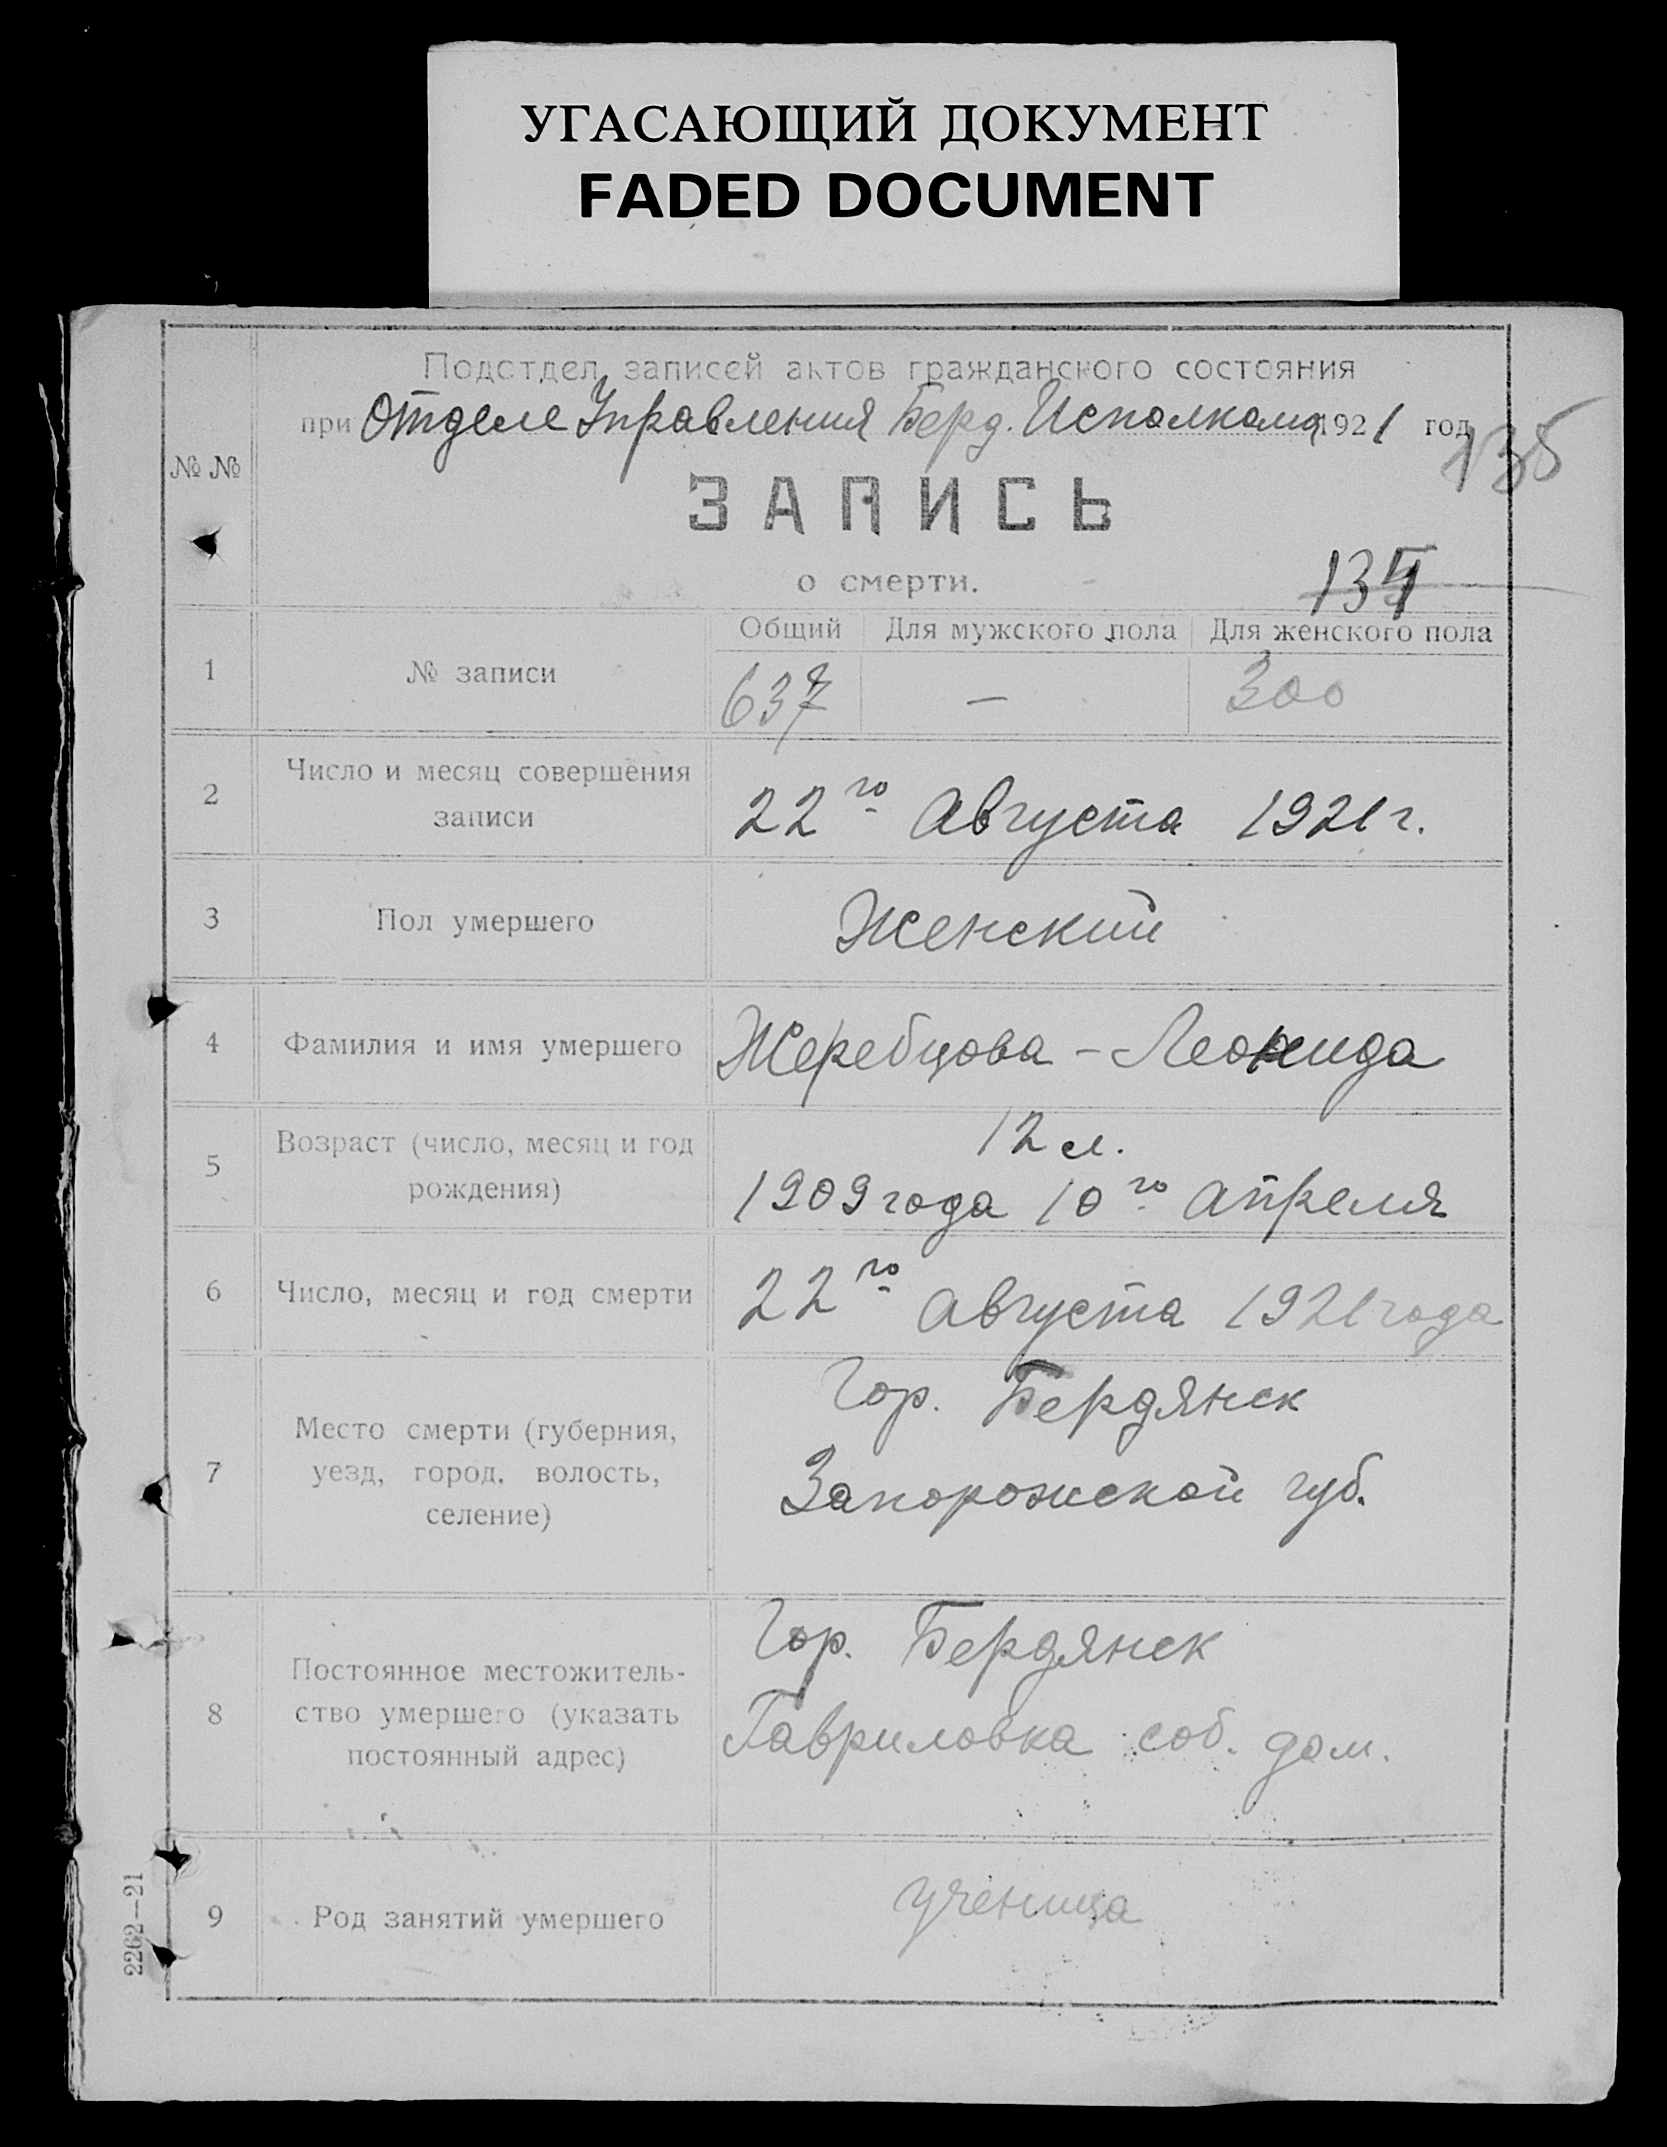 УГАСАЮЩИЙ ДОКУМЕНТ
FADED DOCUMENT
Подотдел записей актов гражданского состояния
при Отделе Управления Берд. Исполкома 1921 год
135
№ №
ЗАПИСЬ
о смерти.
134
Общий Для мужского пола Для женского пола
1 № записи 637 — 300
2 Число и месяц совершения
записи
22го Августа 1921 г.
3 Пол умершего Женский
4 Фамилия и имя умершего Жеребцова - Леонида
5 Возраст (число, месяц и год
рождения)
12 л.
1909 года 10го Апреля
6 Число, месяц и год смерти 22го Августа 1921 года
7 Место смерти (губерния,
уезд, город, волость,
селение)
Гор. Бердянск
Запорожской губ.
8 Постоянное местожитель-
ство умершего (указать
постоянный адрес)
Гор. Бердянск
Гавриловка соб. дом.
9 Род занятий умершего ученица
2262—21